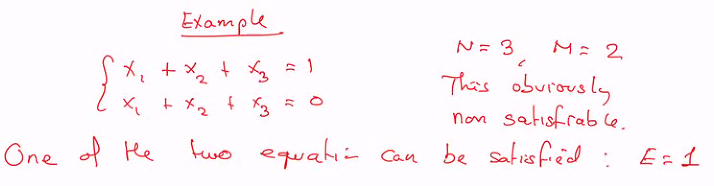 Example
{ x₁ + x₂ + x₃ = 1
x₁ + x₂ + x₃ = 0
N = 3, M = 2
This obviously
non satisfiable.
One of the two equatin can be satisfied : E = 1